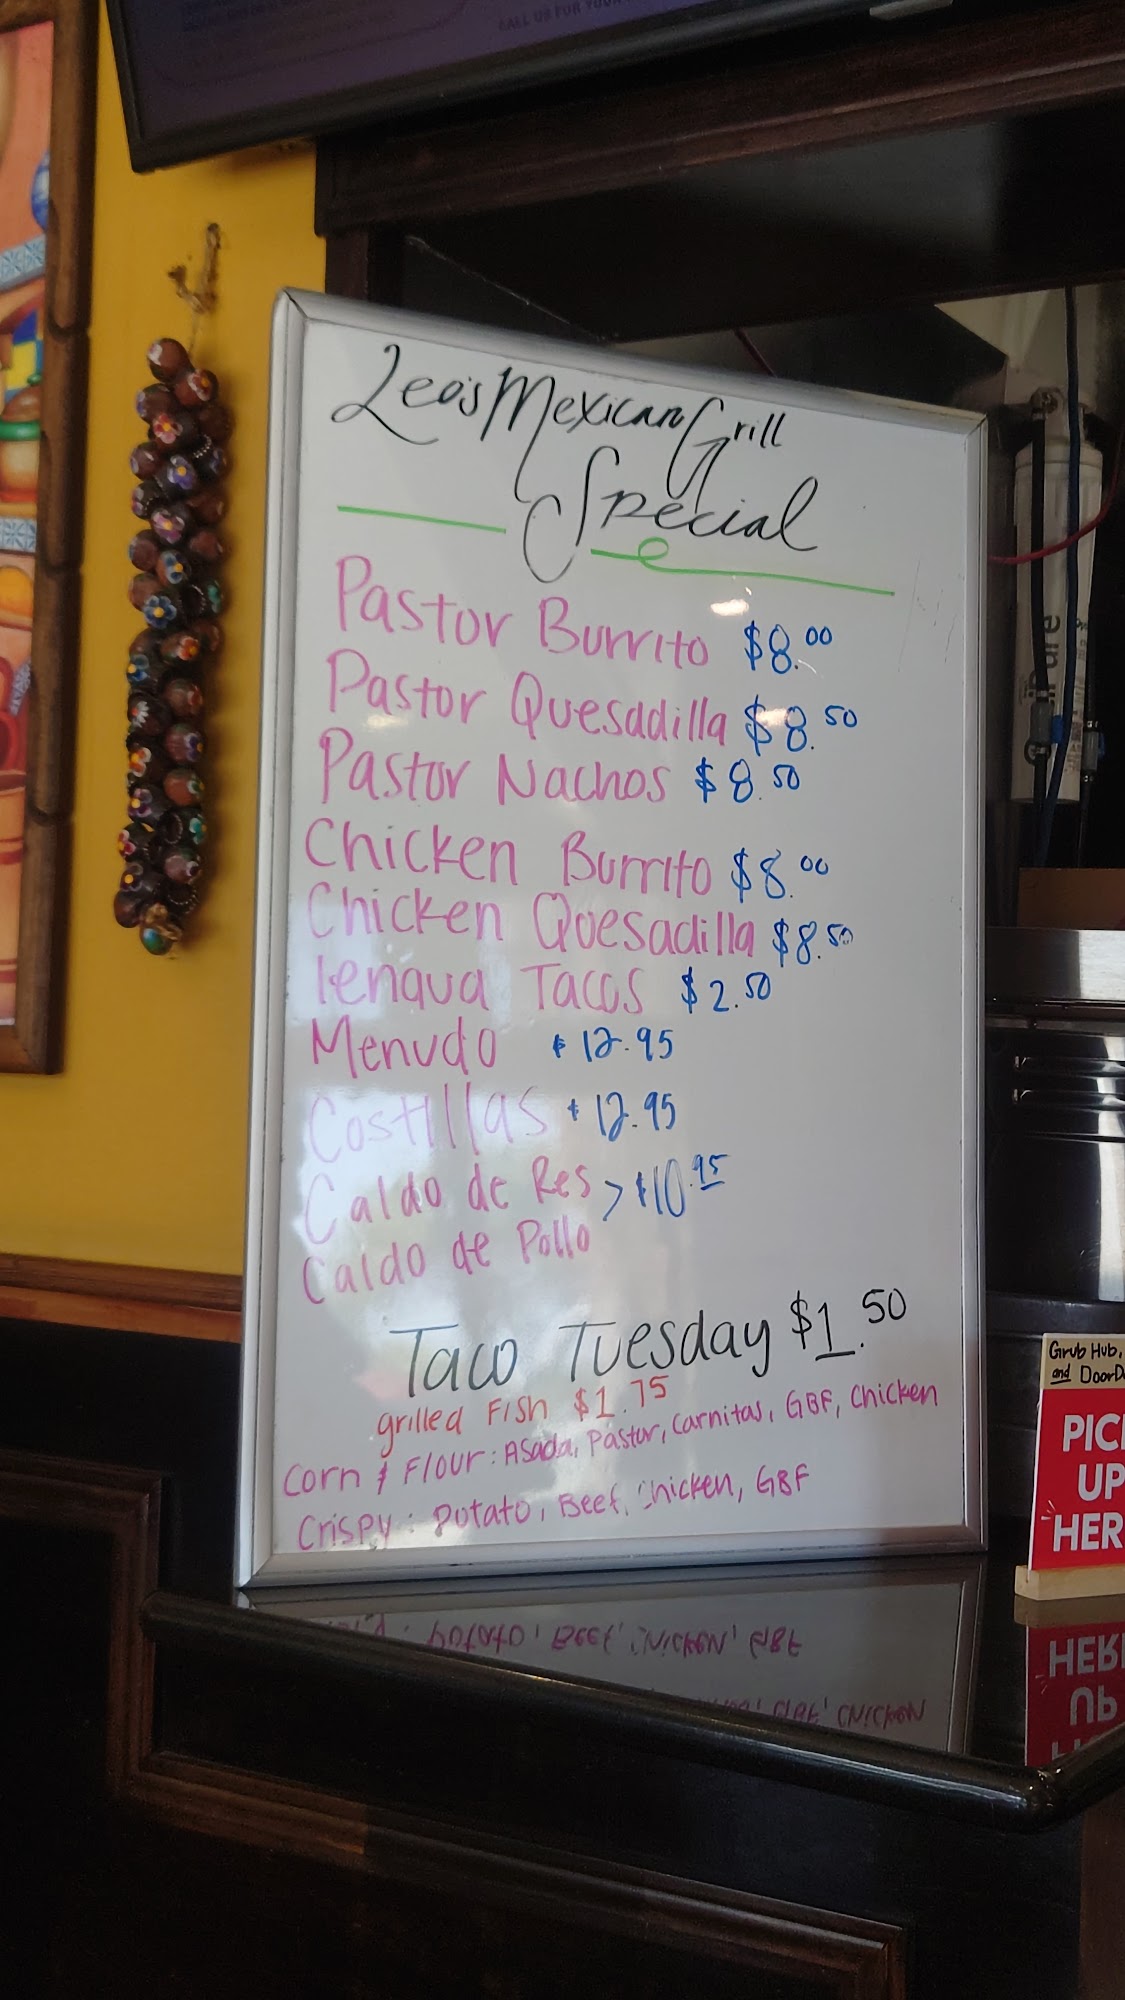 CALL US FOR YOUR
Leo's Mexican Grill
Special
Pastor Burrito $8.00
Pastor Quesadilla $8.50
Pastor Nachos $8.50
Chicken Burrito $8.00
Chicken Quesadilla $8.50
lengua Tacos $2.50
Menudo $12.95
Costillas $12.95
Caldo de Res > $10.95
Caldo de Pollo
Taco Tuesday $1.50
grilled Fish $1.75
Corn & Flour: Asada, Pastor, Carnitas, GBF, Chicken
Crispy: Potato, Beef, Chicken, GBF
Grub Hub,
and DoorD
PIC
UP
HER